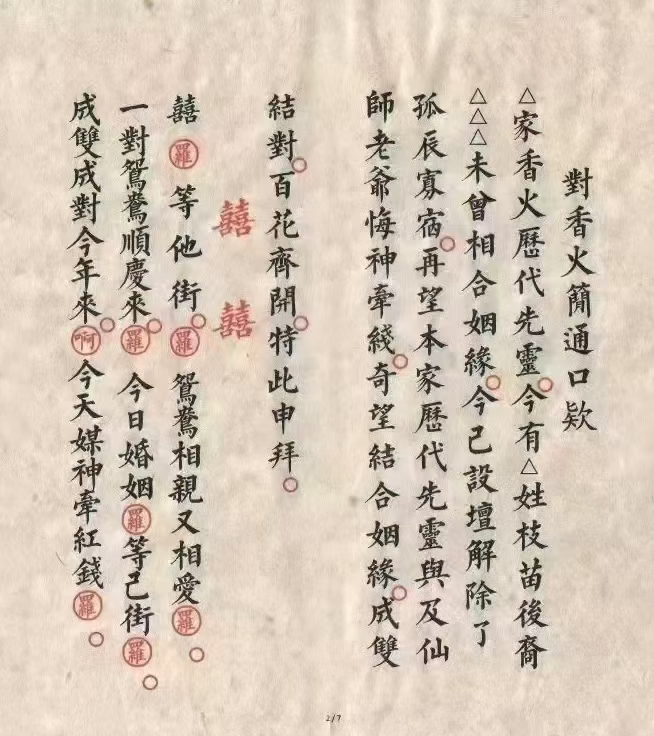 對香火簡通口欵
△家香火歷代先靈○今有△姓枝苗後裔
△△△未曾相合姻緣○今已設壇解除了
孤辰寡宿○再望本家歷代先靈與及仙
師老爺悔神牽綫○奇望結合姻緣○成雙
結對○百花齊開○特此申拜○
囍 囍
囍㊀羅 等他街○羅 鴛鴦相親又相愛羅○
一對鴛鴦順慶來○羅 今日婚姻羅等已街羅○
成雙成對今年來○啊 今天媒神牽紅錢羅○
2/7